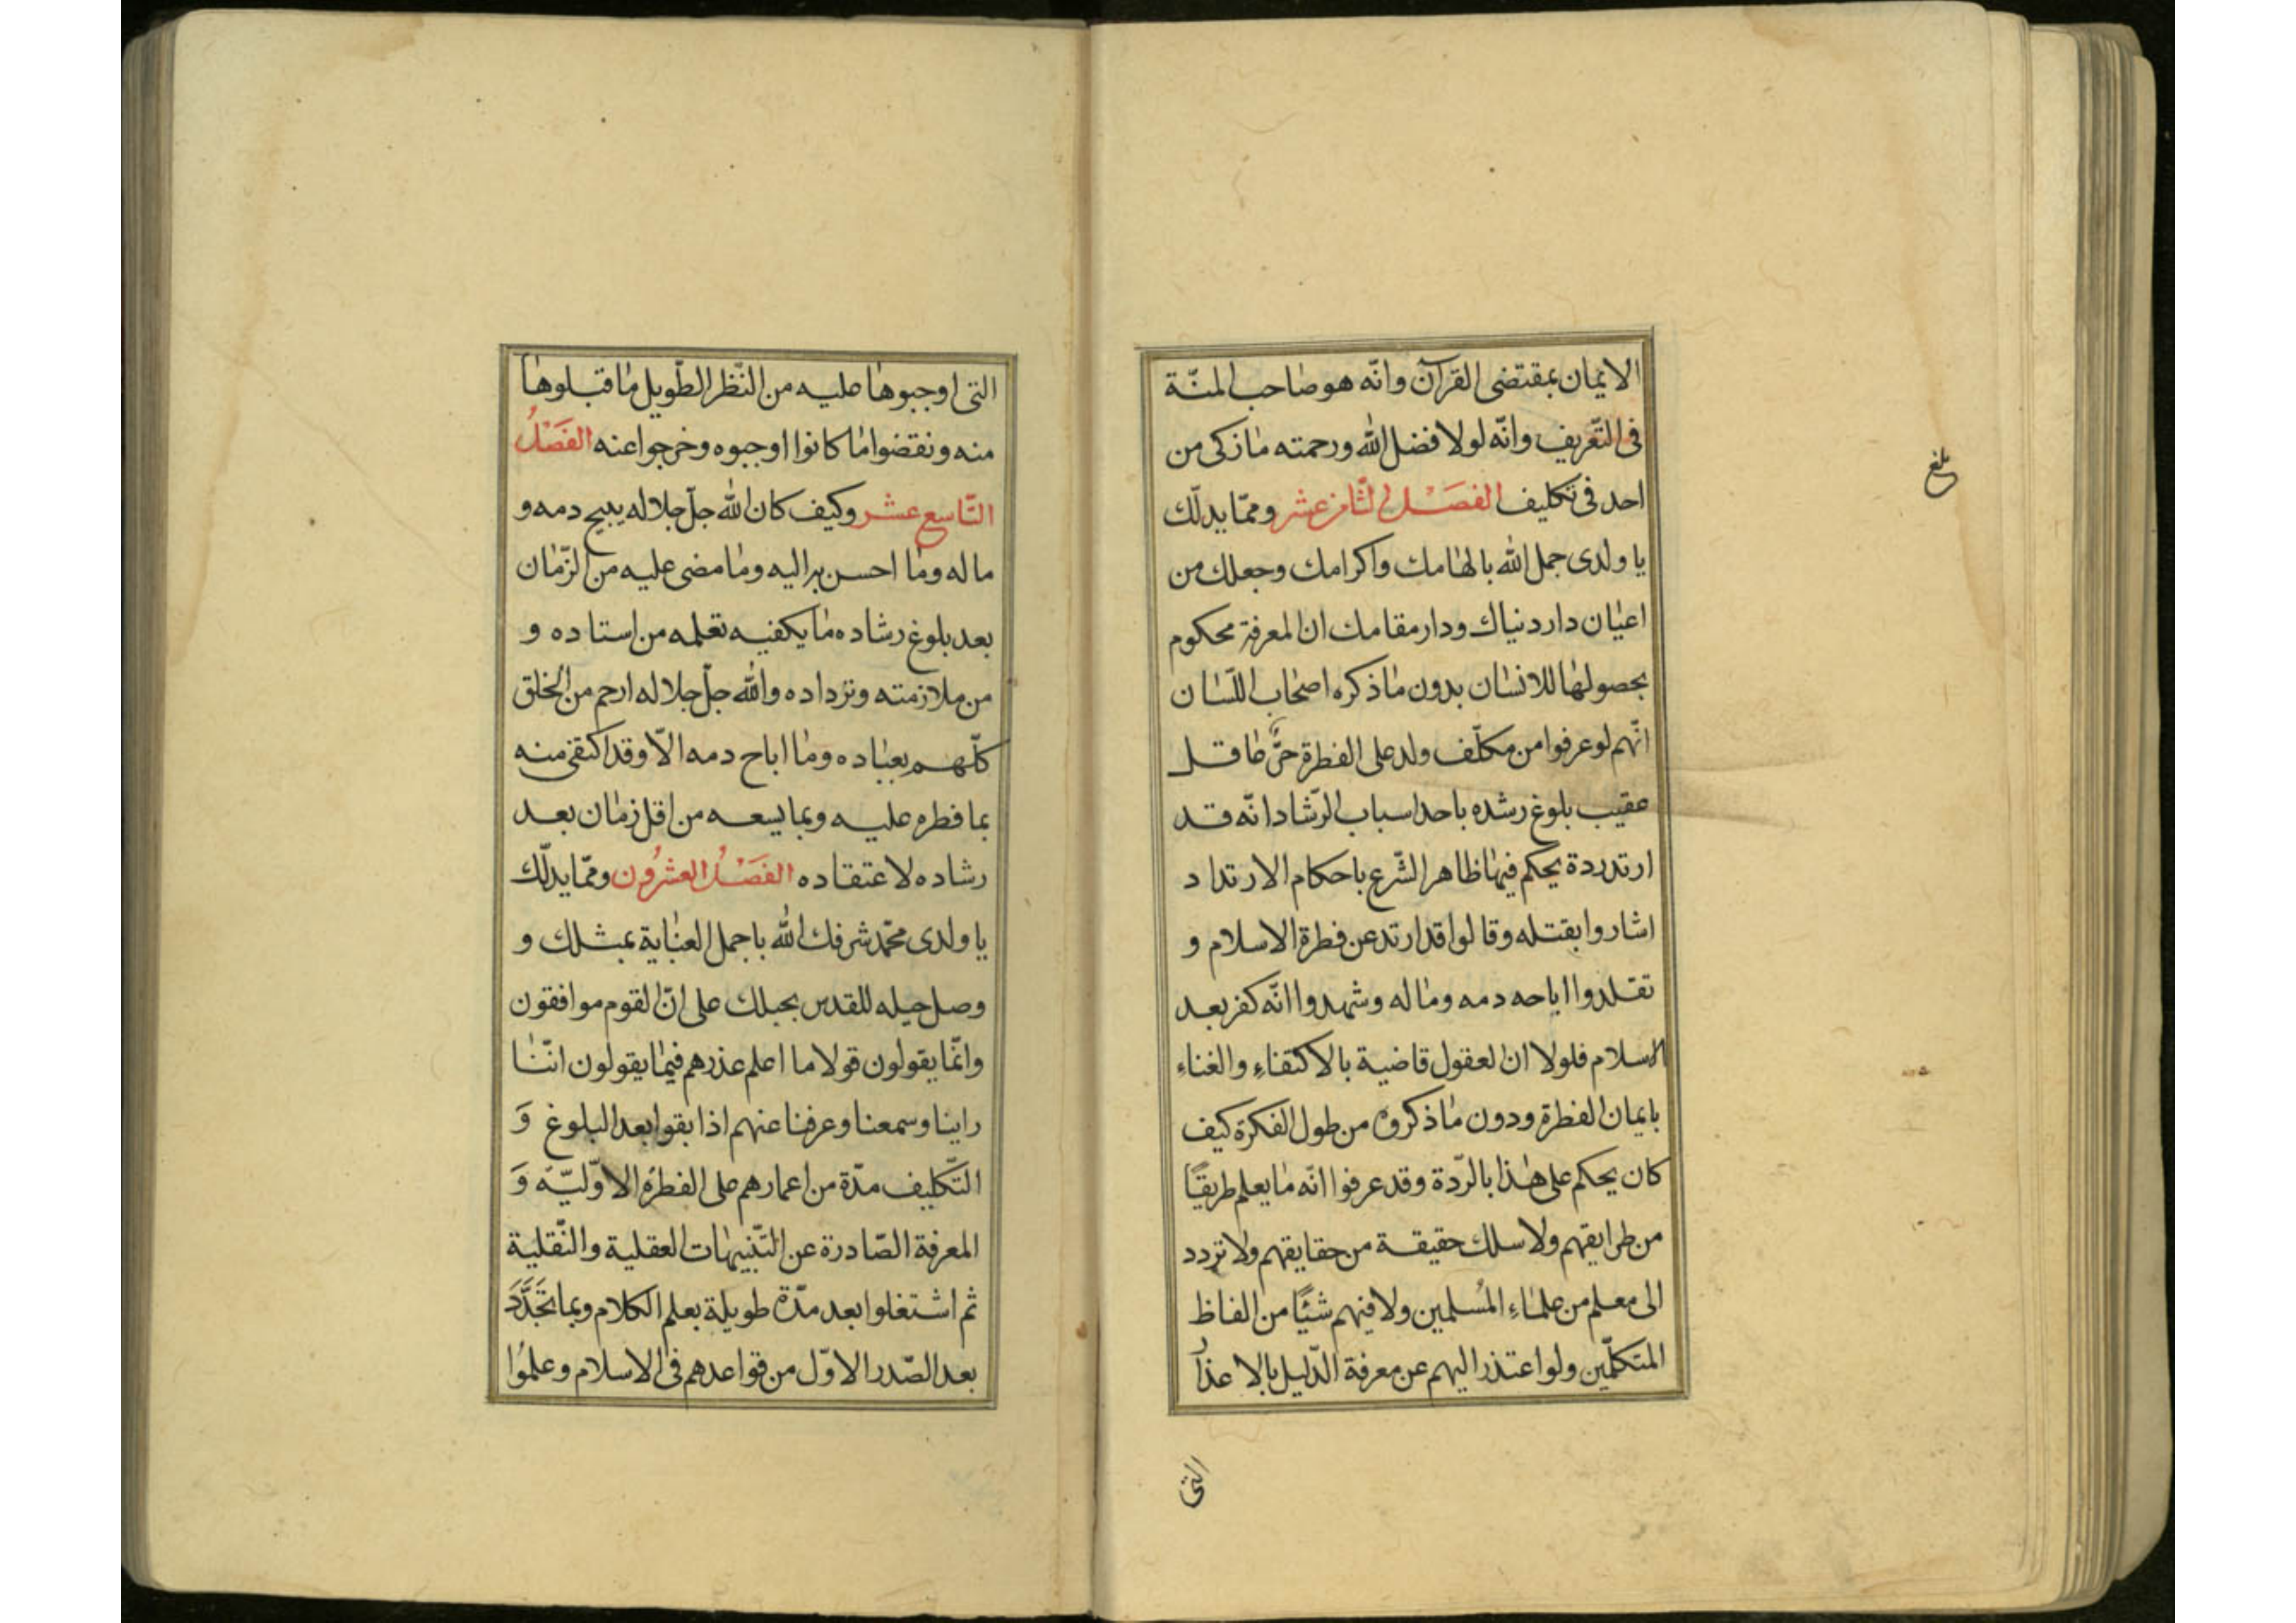 الايمان بمقتضى القرآن وانّه هو صاحب المنّة
فى التّعريف وانّه لولا فضل الله ورحمته مازكى من
احد فى تكليف الفصل الثامن عشر وممّا يدلّك
يا ولدى جمل الله بالهامك واكرامك وجعلك من
اعيان دار دنياك ودار مقامك ان المعرفة محكوم
بحصولها للانسان بدون ما ذكره اصحاب اللّسان
انّهم لو عرفوا من مكلّف ولد على الفطرة حرّ عاقل
عقيب بلوغ رشده باحد اسباب الرّشاد انّه قد
ارتد ردة يحكم فيها ظاهر الشّرع باحكام الارتداد
اشاروا بقتله وقالوا قد ارتد عن فطرة الاسلام و
تقلدوا اباحه دمه وماله وشهدوا انّه كفر بعد
الاسلام فلولا ان العقول قاضية بالاكتفاء والغناء
بايمان الفطرة ودون ما ذكروه من طول الفكرة كيف
كان يحكم على هذا بالرّدة وقد عرفوا انّه ما يعلم طريقًا
من طرايقهم ولا سلك حقيقة من حقايقهم ولا تردد
الى معلم من علماء المُسلمين ولا فهم شيئًا من الفاظ
المتكلّمين ولو اعتذر اليهم عن معرفة الدّليل بالاعذار
التى
بلغ
التى اوجبوها عليه من النّظر الطّويل ما قبلوها
منه ونقضوا ما كانوا اوجبوه وخرجوا عنه الفَصْلُ
التّاسع عشر وكيف كان الله جلّ جلاله يبيح دمه و
ماله وما احسن براليه وما مضى عليه من الزّمان
بعد بلوغ رشاده ما يكفيه تعلمه من استاده و
من ملازمته وترداده والله جلّ جلاله ارحم من الخلق
كلّهم بعباده وما اباح دمه الاّ وقد اكتفى منه
بما فطره عليه وبما يسعه من اقل زمان بعد
رشاده لاعتقاده الفَصْلُ العشرُون وممّا يدلّك
يا ولدى محمّد شرفك الله باجمل العناية بمثلك و
وصل حبله المقدس بحبلك على انّ القوم موافقون
وانّما يقولون قولا ما اعلم عذرهم فيما يقولون انّنا
راينا وسمعنا وعرفنا عنهم اذا بقوا بعد البلوغ وَ
التّكليف مدّة من اعمارهم على الفطرة الاوّليّة وَ
المعرفة الصّادرة عن التّنبيهات العقلية والنّقلية
ثم اشتغلوا بعد مدّة طويلة بعلم الكلام وبما تَجَدَّدَ
بعد الصّدر الاوّل من قواعدهم فى الاسلام وعلمُوا